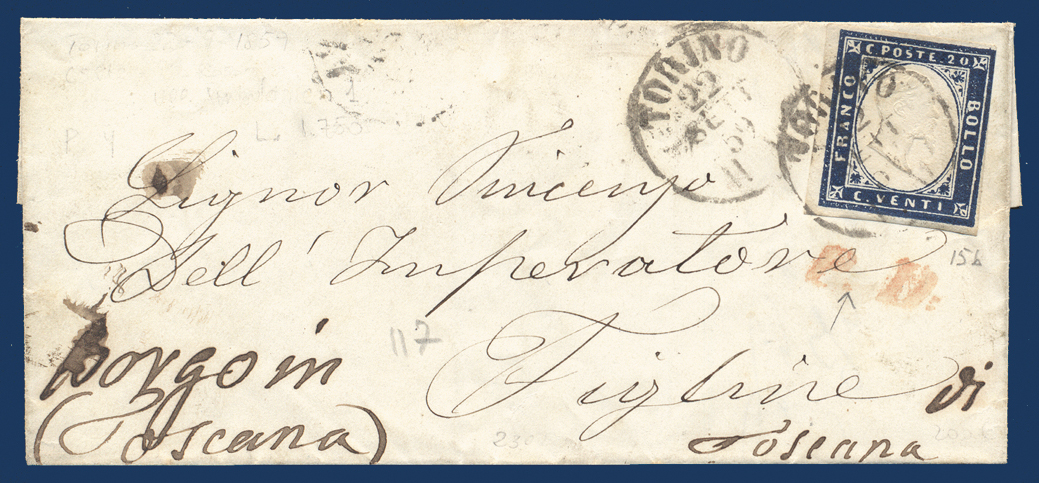 Torino 1859
117
TORINO
22
SET
59
11
C. POSTE. 20
FRANCO
BOLLO
C. VENTI
Signor Vincenzo
Dell' Imperatore
P. D.
15b
Figline di
Toscana
Borgo in
(Toscana)